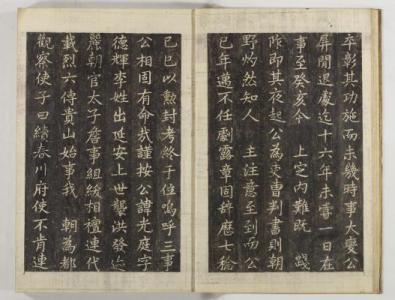 卒彰其功施而未幾時事大變公
屏閒退處迄十六年未嘗一日在
事至癸亥今 上定內難旣踐
阼即其夜起公為吏曹判書則朝
野灼然知人 主注意至到而公
已年邁不任劇露章固辭歷七稔
己巳以勲封考終于位嗚呼三事
公相固有命哉謹按公諱光庭字
德輝李姓出延安上世襲洪發迹
麗朝官太子詹事組紱相襢連代
載烈六傳貴山始事我 朝為都
觀察使子曰續春川府使不肯連